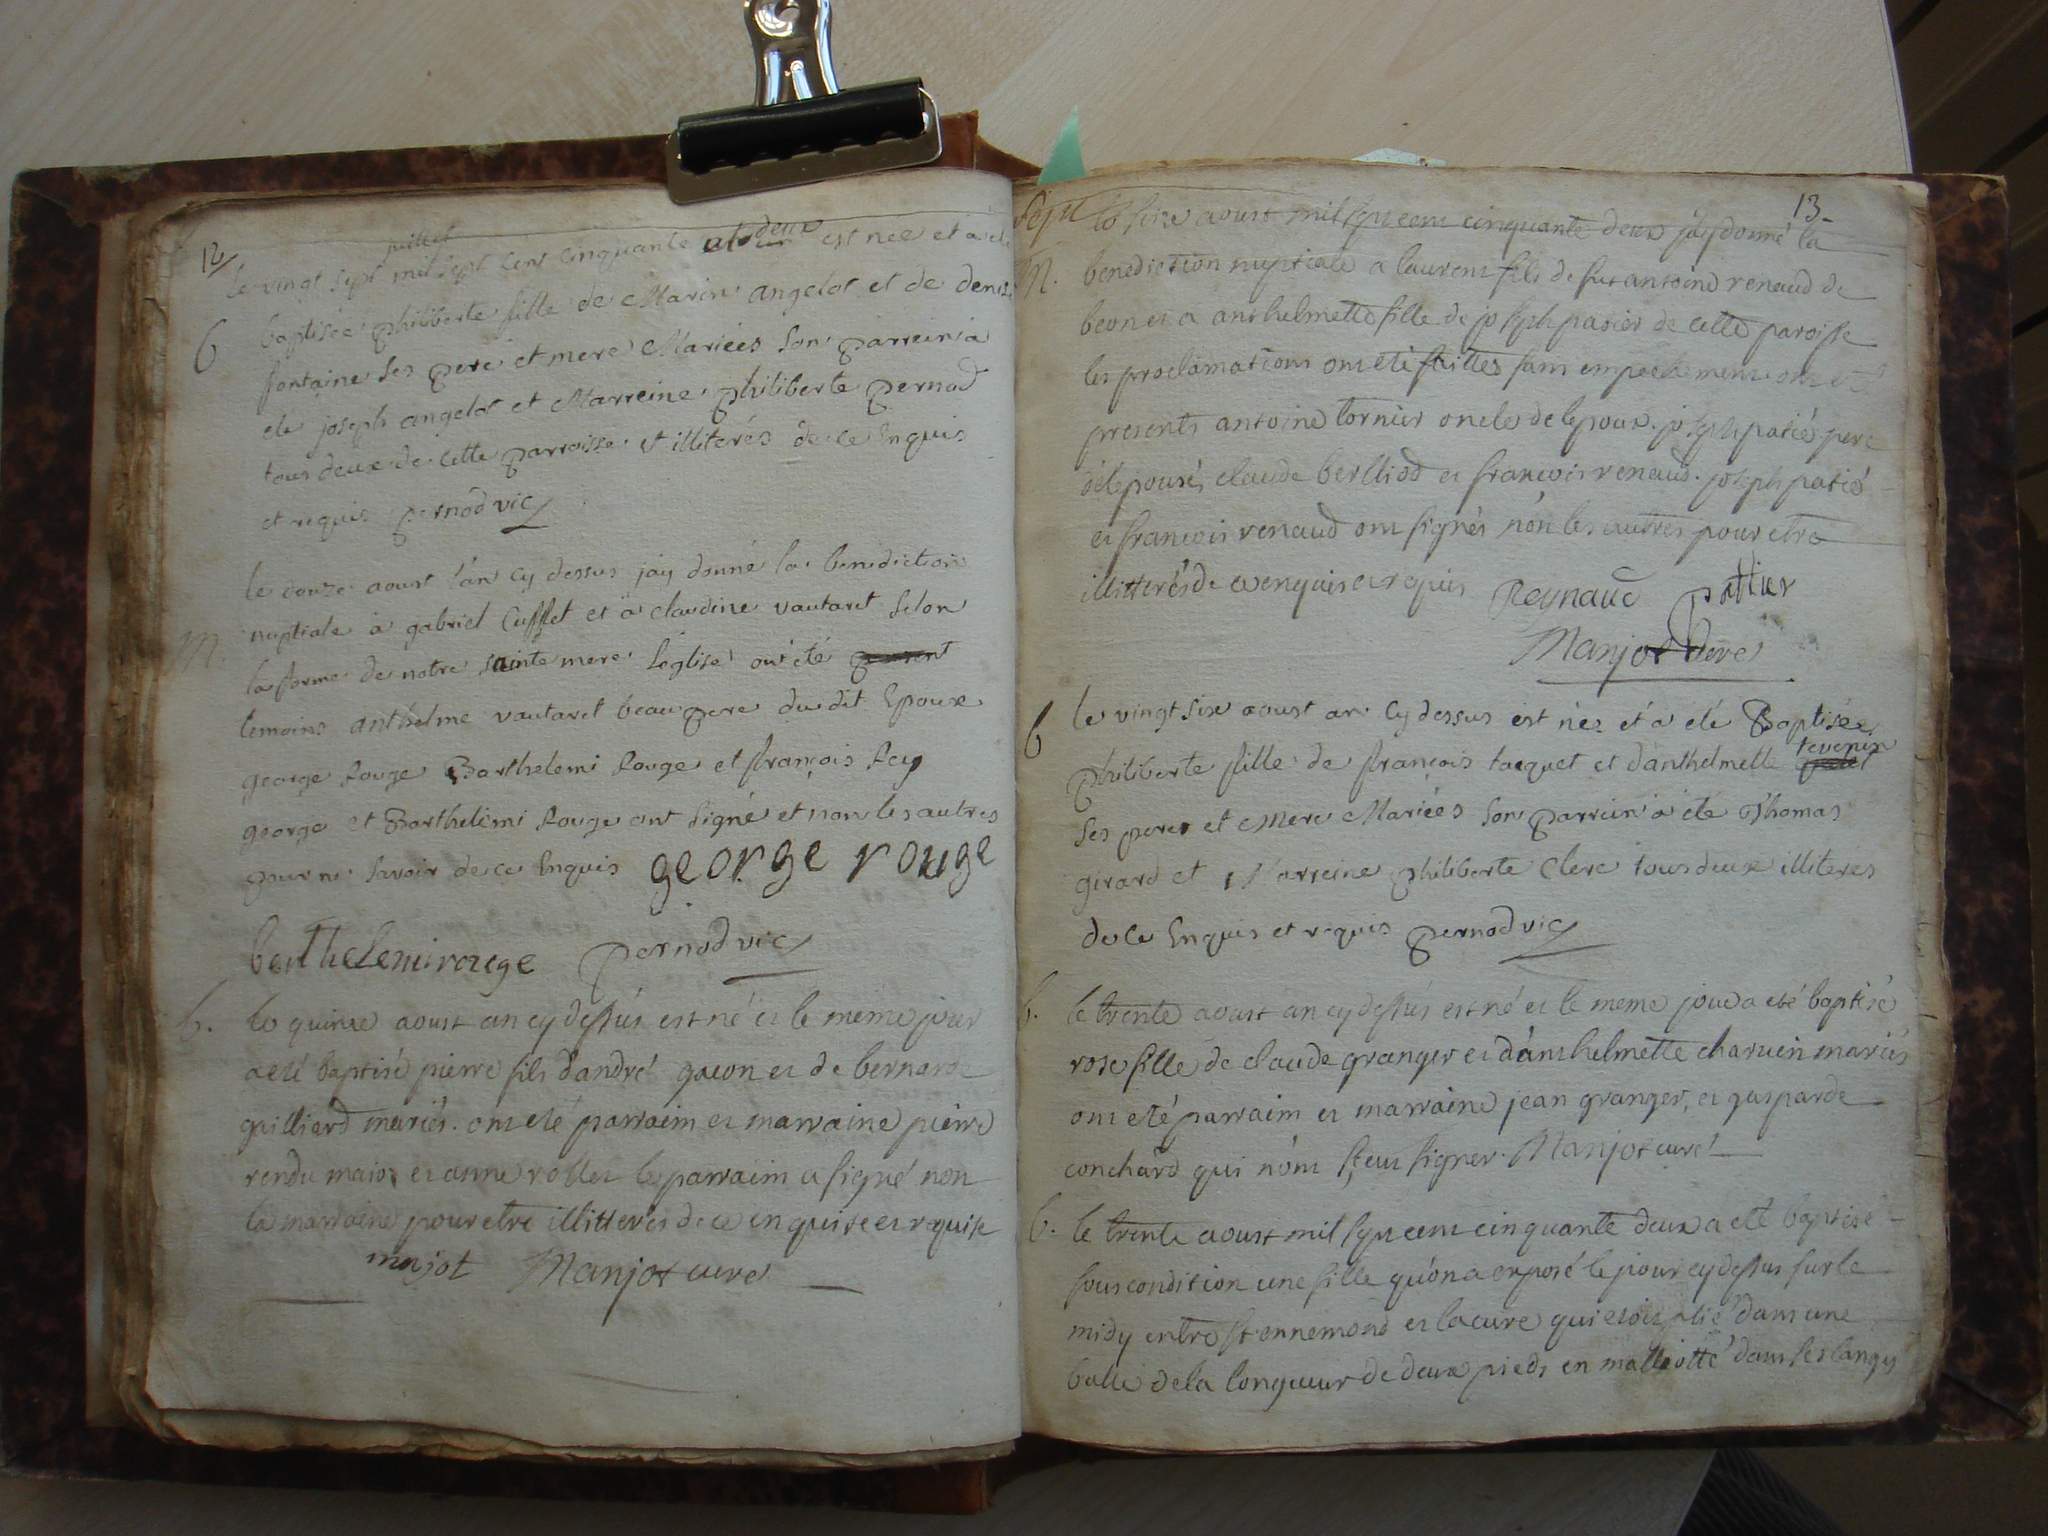 12
juillet
le vingt sept mil sept cent cinquante deux est née et a été
b
baptisée philiberte fille de Marin angelot et de denise
fontaine ses pere et mere Mariées son parrein a
ete joseph angelot et Marreine philiberte pernod
tous deux de cette parroisse et illiterés de ce Enquis
et requis pernod vic
le douze aoust l'an cy dessus jay donné la benediction
M.
nuptiale a gabriel Cufflet et a claudine vautaret selon
la forme de notre sainte mere l'eglise ou été present
temoins anthelme vautaret beau pere du dit Epoux
george Rouge Barthelemi Rouge et françois Rey
george et Barthelemi Rouge ont signé et non les autres
pour ne savoir de ce Enquis george rouge
barthelemi rouge pernod vic
b. le quinze aoust an cy dessus est né et le meme jour
a eté baptisé pierre fils d'andré gacon et de bernarde
guilliard mariés. ont eté parraim et marraine pierre
rendu maior et anne rollet le parraim a signé non
la marraine pour etre illitteres de ce enquise et requise
majot Manjot curé
13
Sept le seize aoust mil sept cent cinquante deux jay donné la
M. benediction nuptiale a laurent fils de fut antoine renaud de
beon et a anthelmette fille de joseph patier de cette paroisse
les proclamations ont eté faittes sans empechement ont eté
presents antoine tornier oncle de lepoux. joseph patié pere
de lepouse, claude berlliod et francois renaud. joseph patié
et francois renaud ont signés non les autres pour etre
illitterés de ce enquis et requis Reynaud pattier
Manjot curé
b le vingt six aoust an cy dessus est née et a eté Baptisée
tevenin
philiberte fille de françois taquet et d'anthelmette
ses peres et Mere Mariées son parrein a ete Thomas
girard et Marreine philiberte Clerc tous deux illiteres
de ce Enquis et requis pernod vic
b. le trente aoust an cy dessus est né et le meme jour a eté baptisé
rose fille de claude granger et d'anthelmette charvin mariés
ont eté parraim et marraine jean granger, et gasparde
conchard qui n'ont sçeu signer. Manjot curé
b. le trente aoust mil sept cent cinquante deux a eté baptisé
sous condition une fille qu'on a exposé le jour cy dessus sur le
midy entre st ennemond et la cure qui etoit plié dans une
balle de la longueur de deux pieds en malliotté dans ses langes